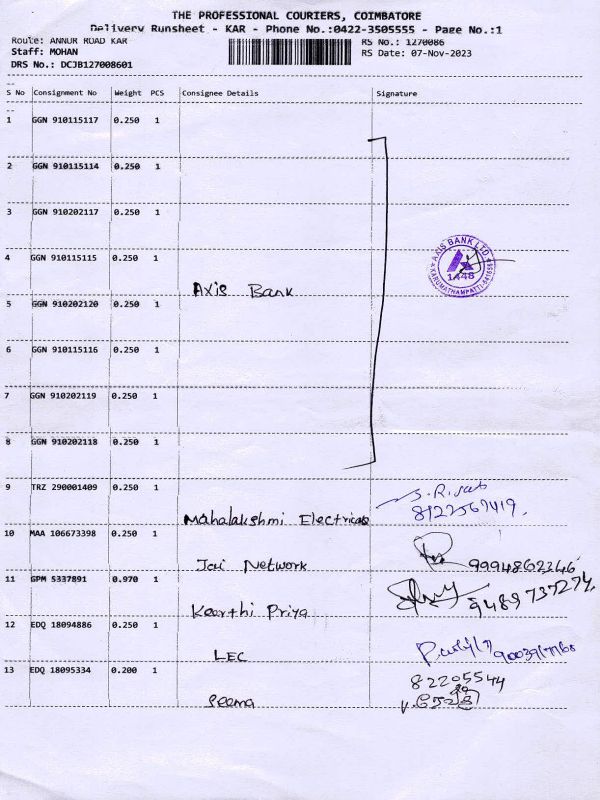 THE PROFESSIONAL COURIERS, COIMBATORE
Delivery Runsheet - KAR - Phone No.:0422-3505555 - Page No.:1
Route: ANNUR ROAD KAR
RS No.: 1270086
Staff: MOHAN
RS Date: 07-Nov-2023
DRS No.: DCJB127008601
S No Consignment No Weight PCS Consignee Details Signature
1 GGN 910115117 0.250 1
2 GGN 910115114 0.250 1
3 GGN 910202117 0.250 1
4 GGN 910115115 0.250 1
AXIS BANK LTD.
1448
KARUMATHAMPATTI-641659
Axis Bank
5 GGN 910202120 0.250 1
6 GGN 910115116 0.250 1
7 GGN 910202119 0.250 1
8 GGN 910202118 0.250 1
9 TRZ 290001409 0.250 1
Mahalakshmi Electricals
10 MAA 106673398 0.250 1
Jai Network 9994862346
11 GPM 5337891 0.970 1
Keerthi Priya 9489737274
12 EDQ 18094886 0.250 1
LEC
13 EDQ 18095334 0.200 1
82205544
Seema